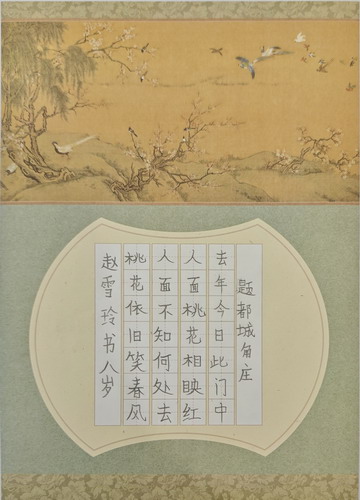 题都城南庄
去年今日此门中
人面桃花相映红
人面不知何处去
桃花依旧笑春风
赵雪玲书八岁